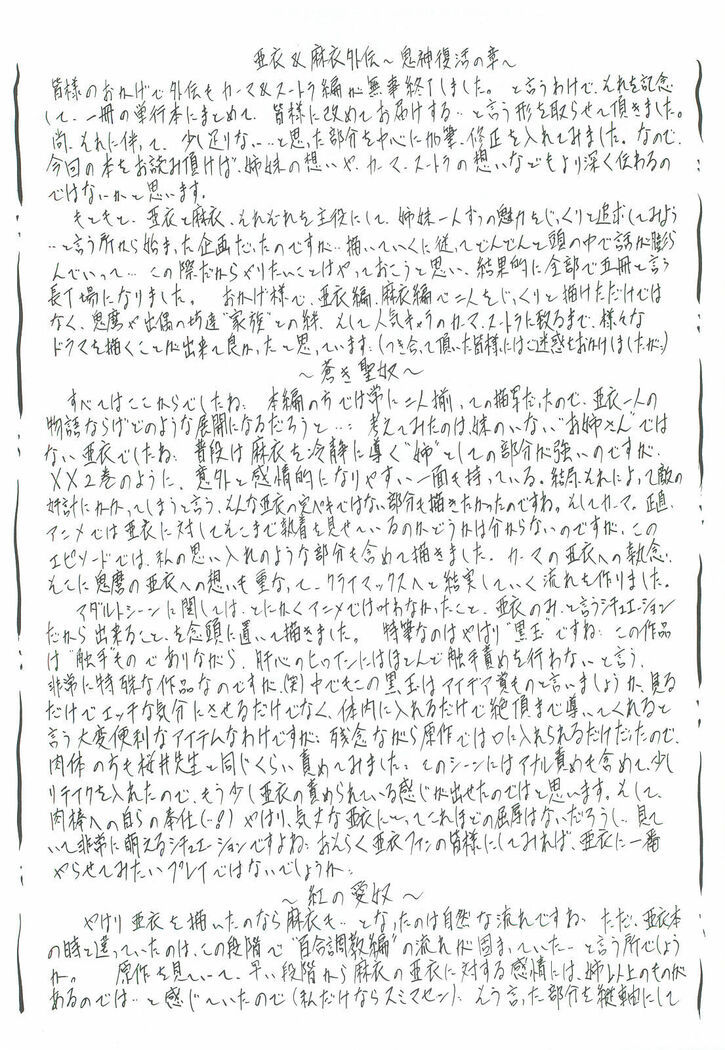 亜衣&麻衣外伝~鬼神復活の章~
皆様のおかげで外伝もカーマ&スートラ編が無事終了しました。と言うわけで、それを記念
して、一冊の単行本にまとめて、皆様に改めてお届けする…と言う形を取らせて頂きました。
尚、それに伴って、少し足りない…と思った部分を中心に加筆、修正を入れてみました。なので、
今回の本をお読み頂けば、姉妹の想いや、カーマ、スートラの想いなどもより深く伝わるの
ではないかと思います。
もともと、亜衣と麻衣、それぞれを主役にして、姉妹一人ずつの魅力をじっくりと追求してみよう
…と言う所から始まった企画だったのですが…描いていくに従ってどんどんと頭の中で話が膨ら
んでいって…この際だからやりたいことはやっておこうと思い、結果的に全部で五冊と言う
長丁場になりました。おかげ様で、亜衣編、麻衣編で二人をじっくりと描けただけでは
なく、鬼磨や出雲の坊達"家族"との絆、そして人気キャラのカーマ、スートラに到るまで、様々な
ドラマを描くことが出来て良かったと思っています。(つき合って頂いた皆様にはご迷惑をおかけしましたが…)
~蒼き聖奴~
すべてはここからでしたね… 本編の方では常に二人揃っての描写だったので、亜衣一人の
物語ならばどのような展開になるだろうと…… 考えてみたのは、妹のいない"お姉さん"では
ない亜衣でしたね… 普段は麻衣を冷静に導く"姉"としての部分が強いのですが、
XX2巻のように、意外と感情的になりやすい一面も持っている。結局、それによって敵の
奸計にかかってしまうと言う、そんな亜衣の完ペキではない部分も描きたかったのですね。そしてカーマ。正直、
アニメでは亜衣に対してそこまで執着を見せているのかどうかは分からないのですが、この
エピソードでは、私の思い入れのような部分も含めて描きました。カーマの亜衣への執念、
そこに鬼磨の亜衣への想いも重なって、クライマックスへと結実していく流れを作りました。
アダルトシーンに関しては、とにかくアニメでは叶わなかったこと、亜衣のみ、と言うシチュエイション
だから出来ること、を念頭に置いて描きました。特筆なのはやはり"黒玉"ですね… この作品
は"触手"ものでありながら、肝心のヒロインにはほとんど触手責めを行わないと言う、
非常に特殊な作品なのですが、(笑)中でもこの黒玉はアイデア賞ものと言いましょうか、見る
だけでエッチな気分にさせるだけでなく、体内に入れるだけで絶頂まで導いてくれると
言う大変便利なアイテムなわけですが… 残念ながら原作では口に入れられるだけだったので、
肉体の方も桜井先生と同じくらい責めてみました… このシーンにはアナル責めも含めて、少し
リテイクを入れたので、もう少し亜衣の責められている感じが出せたのではと思います。そして、
肉棒への自らの奉仕(…!?) やはり、気丈な亜衣にとってこれほどの屈辱はないだろうし…見て
いて非常に萌えるシチュエーションですよね… おそらく亜衣ファンの皆様にしてみれば、亜衣に一番
やらせてみたいプレイではないでしょうか…
~紅の愛奴~
やはり亜衣を描いたのなら麻衣も…となったのは自然な流れですね… ただ、亜衣本
の時と違っていたのは、この段階で"百合調教編"の流れが固まっていた…と言う所でしょう
か。 原作を見ていて、早い段階から麻衣の亜衣に対する感情には、姉以上のものが
あるのでは…と感じていたので(私だけならスミマセン)… そう言った部分を縦軸にして